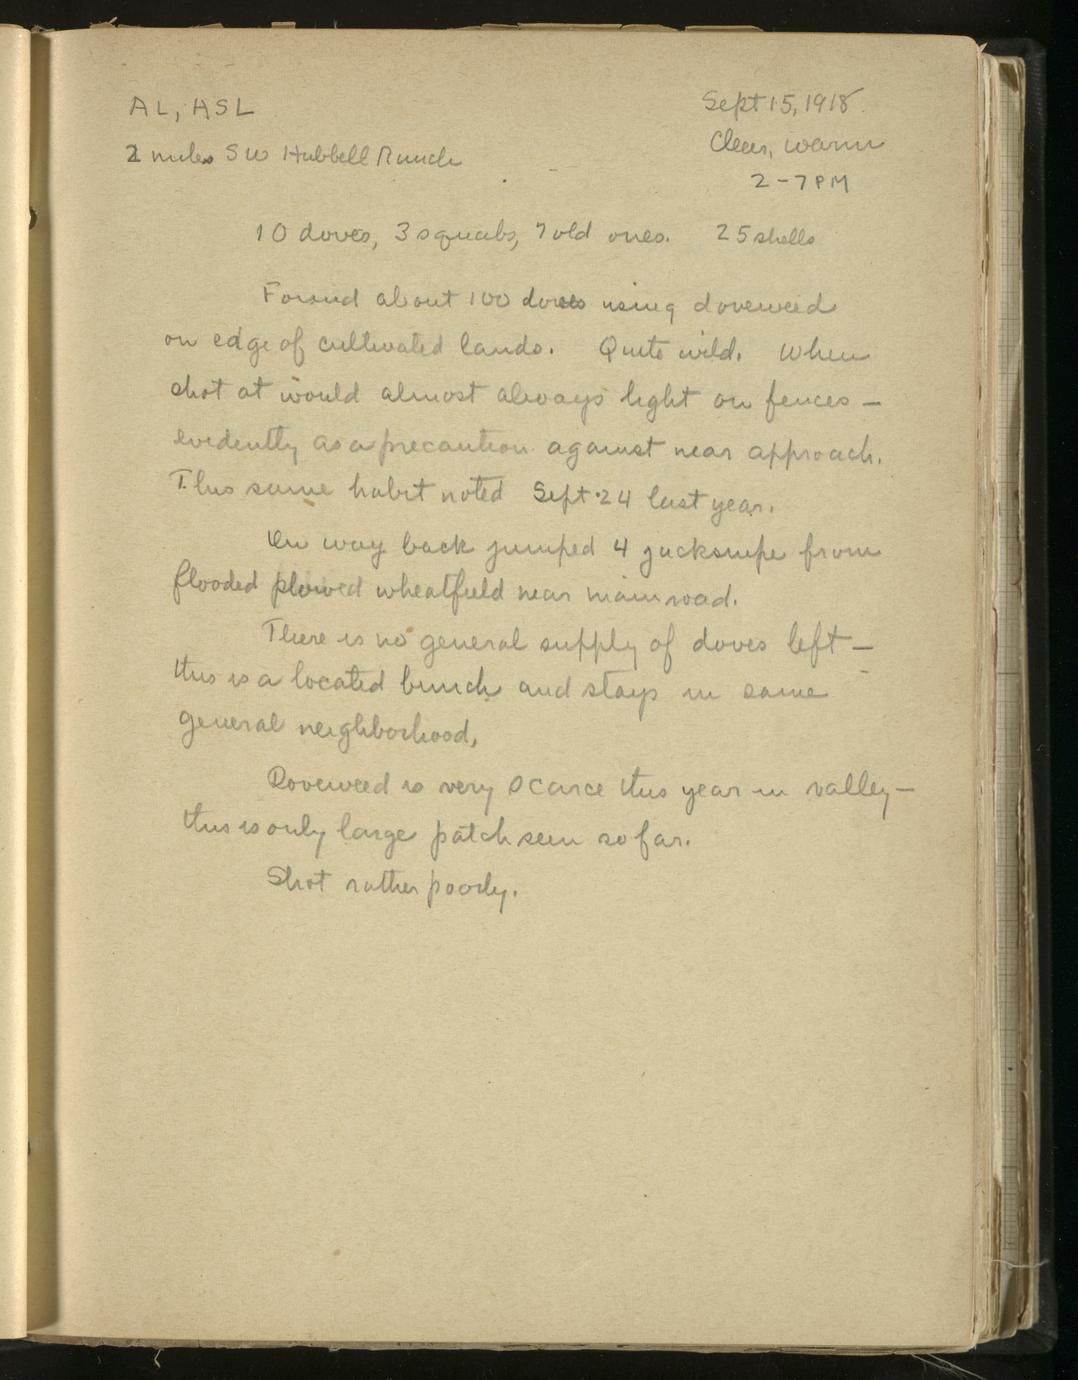 AL, HSL
Sept 15, 1918
2 miles SW Hubbell Ranch
Clear, warm
2-7 PM
10 doves, 3 squabs, 7 old ones. 25 shells
Found about 100 doves using doveweed
on edge of cultivated lands. Quite wild. When
shot at would almost always light on fences —
evidently as a precaution against near approach.
This same habit noted Sept. 24 last year.
On way back jumped 4 jacksnipe from
flooded plowed wheatfield near main road.
There is no general supply of doves left —
this is a located bunch and stays in same
general neighborhood,
Doveweed is very scarce this year in valley —
this is only large patch seen so far.
Shot rather poorly.